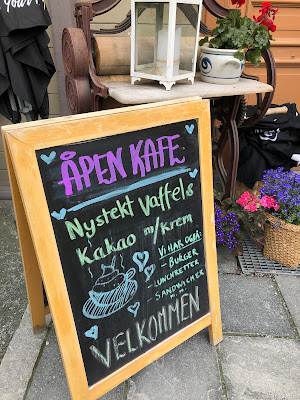 ÅPEN KAFE
Nystekt Vaffels
Kakao m/krem
VI HAR OGSÅ:
- BURGER
- LUNCHRETTER
- SANDWICHER
VELKOMMEN